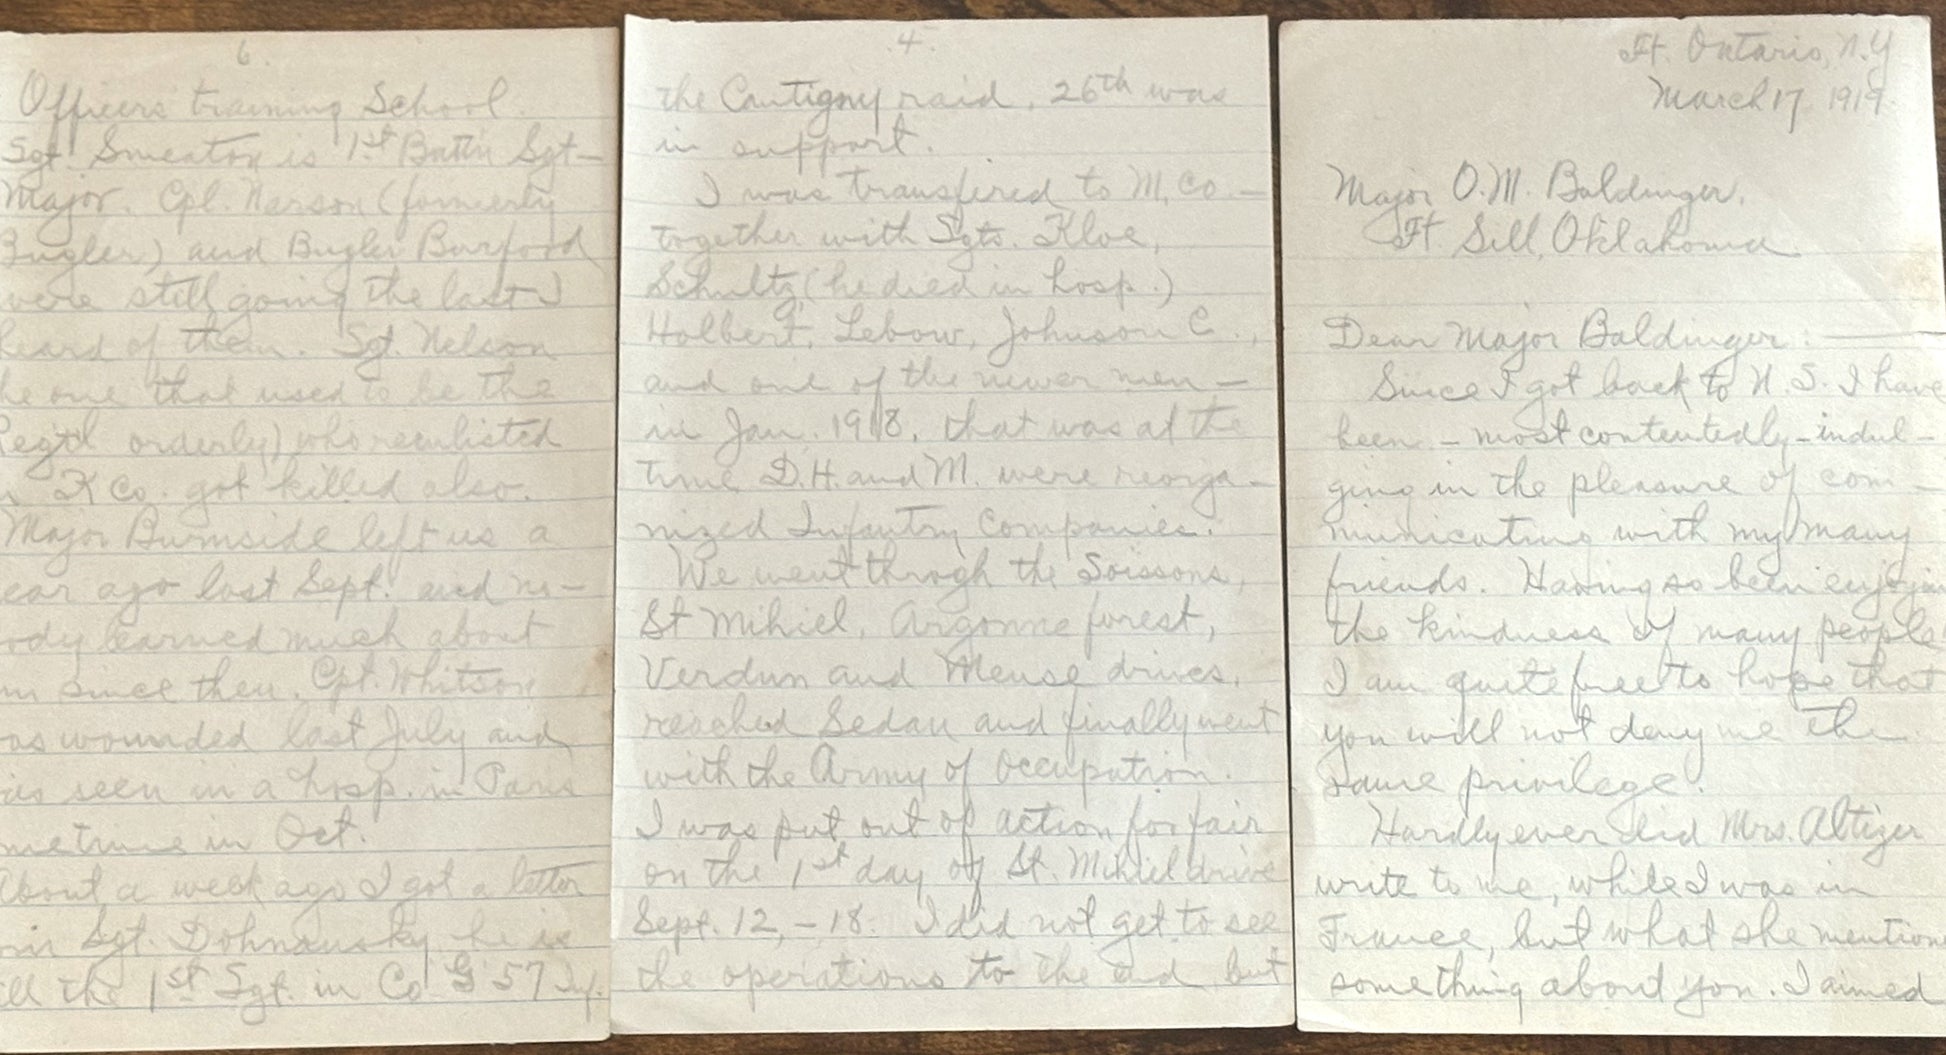 6.
Officers' training School.
Sgt. Smeaton is 1st Battn Sgt-
Major. Cpl. Nerson (formerly
Bugler) and Bugler Burford
were still going the last I
heard of them. Sgt. Nelson
he one that used to be the
Regtl orderly) who reenlisted
K Co. got killed also.
Major Burnside left us a
ear ago last Sept. and no-
ody learned much about
m since then. Cpt. Whitson
as wounded last July and
as seen in a hosp. in Paris
metime in Oct.
About a week ago I got a letter
om Sgt. Dohnansky he is
ill the 1st Sgt. in Co G 57 Inf.
.4.
the Cantigny raid, 26th was
in support.
I was transfered to M. Co. -
together with Sgts. Kloe,
Schultz (he died in hosp.)
Holbert, Lebow, Johnson C.,
and one of the newer men -
in Jan. 1918, that was at the
time D. H. and M. were reorga-
nized Infantry Companies.
We went throgh the Soissons,
St Mihiel, Argonne forest,
Verdun and Meuse drives,
reached Sedan and finally went
with the Army of Occupation.
I was put out of action for fair
on the 1st day of St. Mihiel drive
Sept. 12, - 18. I did not get to see
the operations to the end but
Ft. Ontario, N.Y
March 17, 1919.
Major O. M. Baldinger,
Ft Sill, Oklahoma.
Dear Major Baldinger: -
Since I got back to U. S. I have
been - most contentedly - indul-
ging in the pleasure of com-
municating with my many
friends. Having so been enjoyin
the kindness of many people
I am quite free to hope that
you will not deny me the
same privilege.
Hardly ever did Mrs. Altizer
write to me, while I was in
France, but what she mention
something about you. I aimed